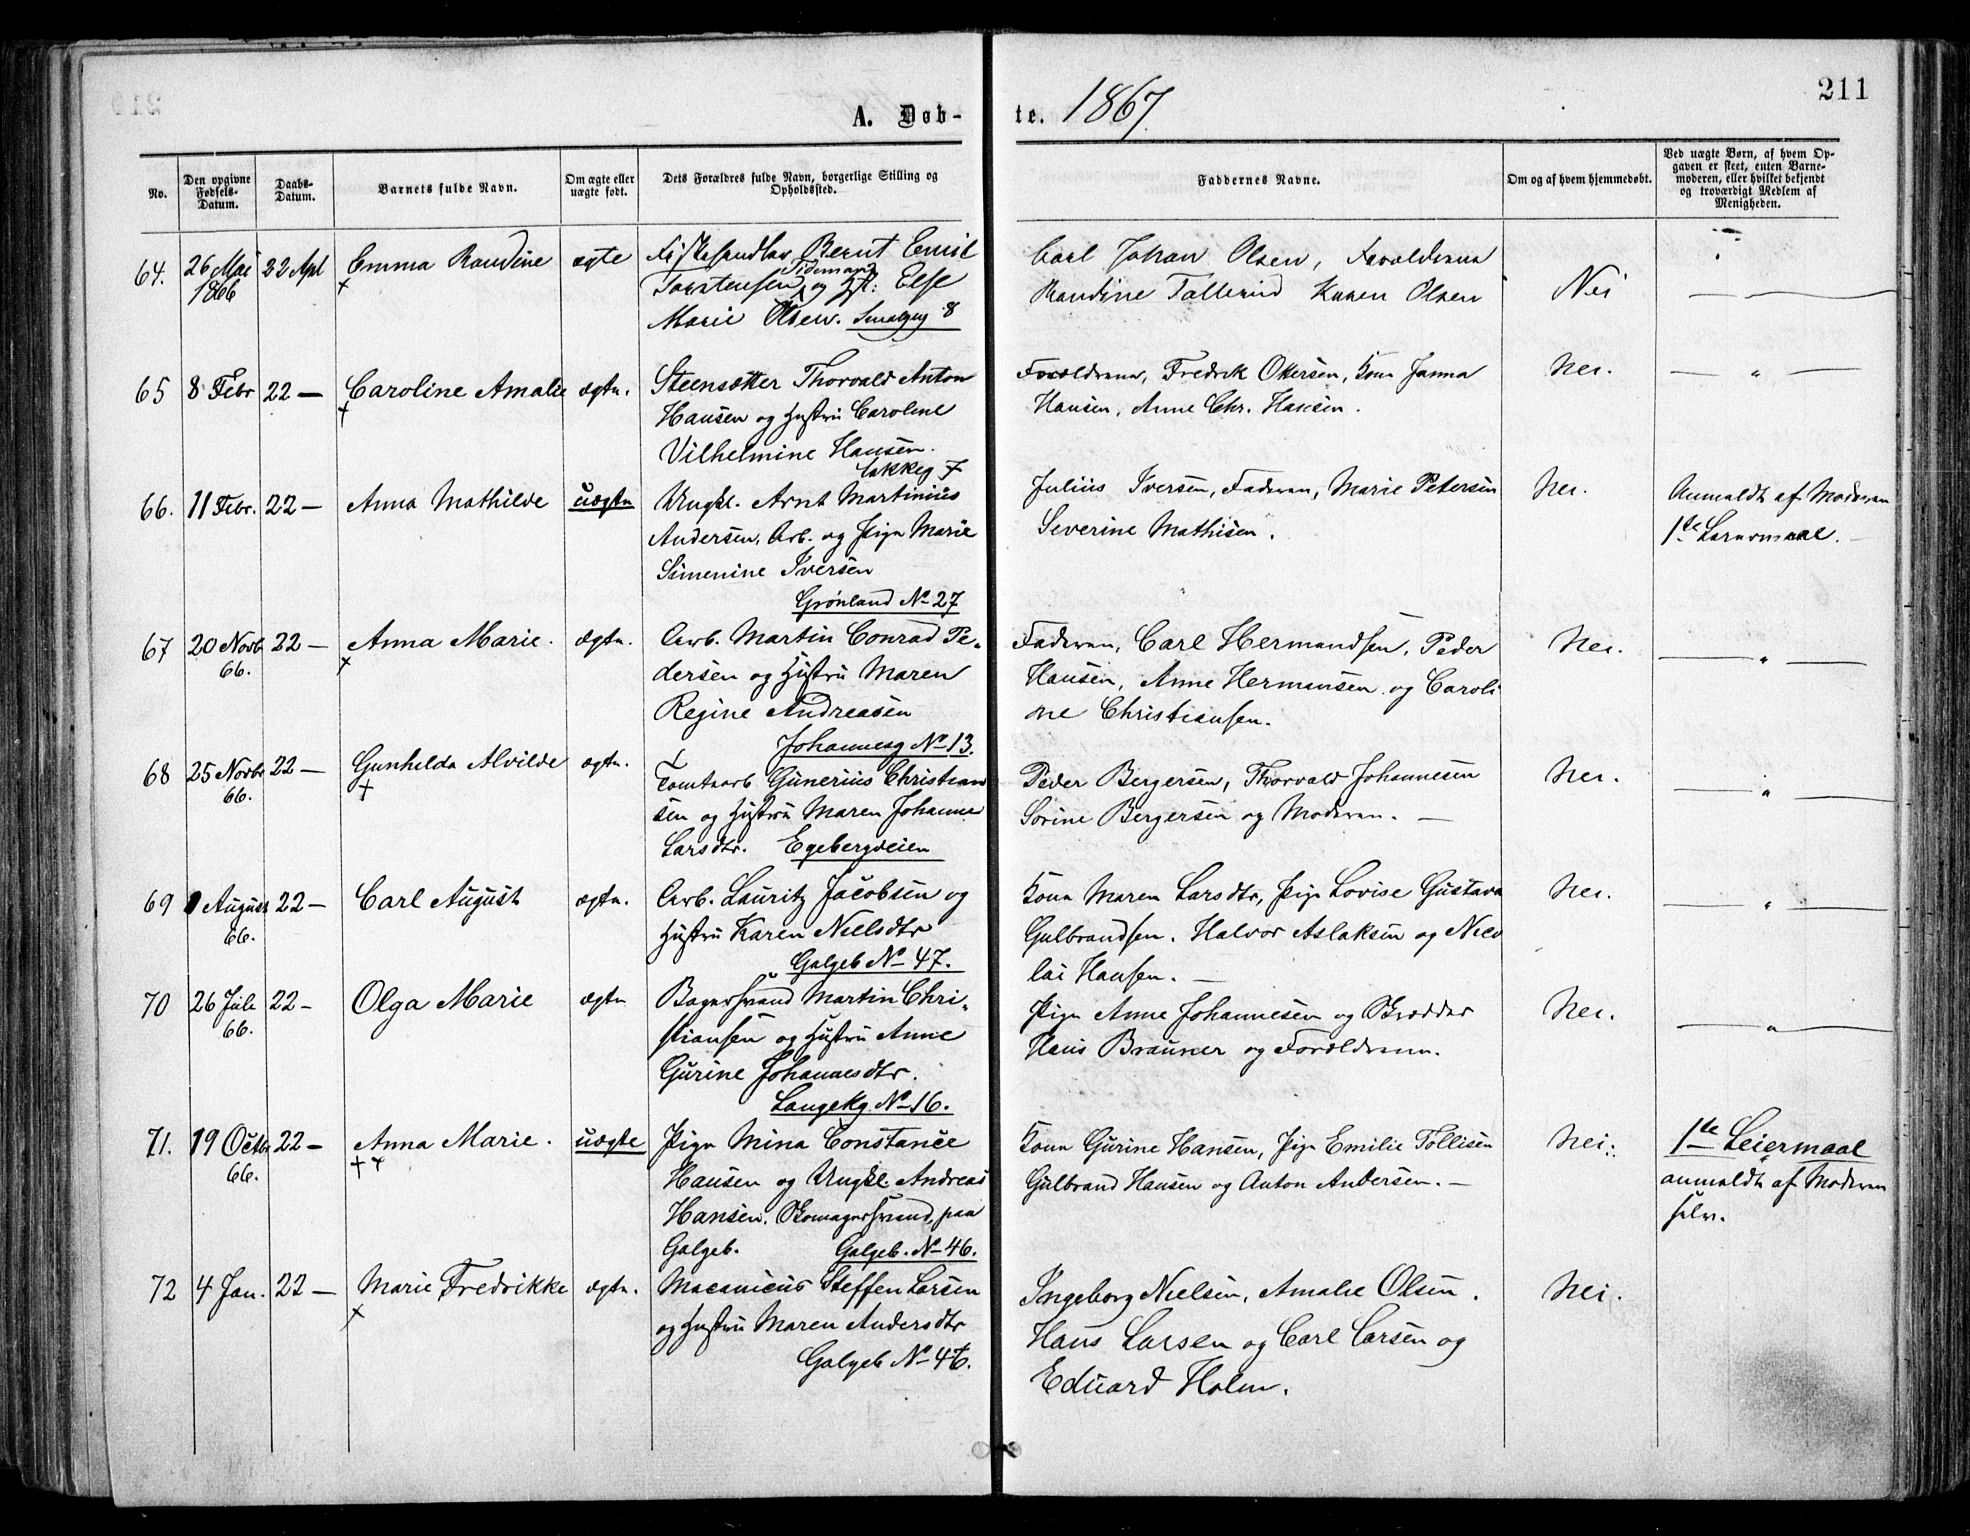 A. Døb-
te. 1867.
211
No.
Den opgivne Fødsels-Datum.
Daabs-Datum.
Barnets fulde Navn.
Om ægte eller uægte født.
Dets Forældres fulde Navn, borgerlige Stilling og Opholdssted.
Faddernes Navne.
Om og af hvem hjemmedøbt.
Ved uægte Børn, af hvem Opgaven er skeet, enten Barnemoderen, eller hvilket bekjendt og troværdigt Medlem af Menigheden.
64. 26 Mai 22 Apl Emma Randine ægte Fiskehandler Bernt Emil
1866 Tidemand
Torstensen og Hst: Else
Marie Olsen. Smalgng 8
Carl Johan Olsen, Forældrene
Randine Tallerud Karen Olsen
Nei
65 8 Febr 22 — Caroline Amalie ægte. Steensætter Thorvald Anton
Hansen og Hustru Caroline
Vilhelmine Hansen.
Lakkeg 7
Forældrene, Fredrik Ottersen, Kone Janna
Hansen, Anne Chr. Hansen.
Nei.
66. 11 Febr. 22 — Anna Mathilde uægte Ungkl. Arnt Martinius
Andersen, Arb. og Pige Marie
Simenine Iversen
Grønland No 27
Julius Iversen, Faderen, Marie Petersen
Severine Mathisen.
Nei.
Anmeldt af Moderen
1ste Leiermaal.
67 20 Novb. 22 — Anna Marie. ægte. Arb. Martin Conrad Pe-
66. dersen og Hustru Maren
Regine Andreasen
Johannesg No 13.
Faderen, Carl Hermandsen, Peder
Hansen, Anne Hermansen og Caroli
ne Christiansen.
Nei.
68 25 Novbr 22 — Gunhilda Alvilde ægte. Tomtearb Gunerius Christian
66. sen og Hustru Maren Johanne
Larsdtr. Egebergveien
Peder Bergersen, Thorvald Johannesen
Sorine Bergersen og Moderen. —
Nei.
69 August 22 — Carl August ægte. Arb. Lauritz Jacobsen og
66. Hustru Karen Nielsdtr
Galgeb No 47.
Kone Maren Larsdtr, Pige Lovise Gustava
Gulbrandsen. Halvor Aslaksen og Nico
lai Hansen. —
Nei.
70 26 Juli 22 — Olga Marie ægte Bagersvend Martin Chri-
66. stiansen og Hustru Anne
Gurine Johannesdtr.
Langekg. No 16.
Pige Anne Johannesen og Broder
Hans Brauner og Forældrene.
Nei.
71. 19 Octbr 22 — Anna Marie. uægte Pige Mina Constance
66. Hansen og Ungkl. Andreas
Hansen. Skomagersvend, paa
Galgeb. Galgeb. No 46.
Kone Gurine Hansen, Pige Emilie Tollisen
Gulbrand Hansen og Anton Andersen. —
Nei.
1ste Leiermaal
anmeldt af Moderen
selv.
72 4 Jan. 22 — Marie Fredrikke ægte. Macanicus Steffen Larsen
og Hustru Maren Andersdtr
Galgeb No 46.
Ingeborg Nielsen, Amalie Olsen.
Hans Larsen og Carl Larsen og
Eduard Holm.
Nei.